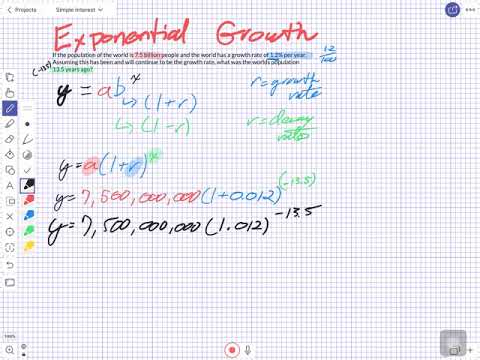 Projects
Simple interest
Exponential Growth
If the population of the world is 7.5 billion people and the world has a growth rate of 1.2% per year.
Assuming this has been and will continue to be the growth rate, what was the worlds population
13.5 years ago?
(-13.5)
12
100
y = ab^x
(1+r)
(1-r)
r = growth rate
r = decay rate
y = a(1+r)^x
y = 7,500,000,000(1+0.012)^(-13.5)
y = 7,500,000,000(1.012)^-13.5
100%